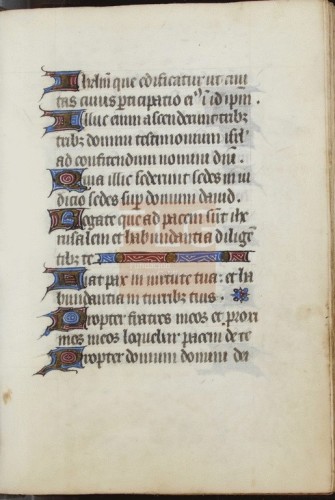 Jhelm que edificatur ut ciui
tas cuius participatio eiꝰ ī idipm̄.
Illuc enim ascenderunt tribꝫ
tribꝫ domini testimonium isrl
ad confitendum nomini dn̄i.
Quia illic sederunt sedes in iu
dicio sedes sup domum dauid.
Rogate que ad pacem sūt ihe
rusalem et habundantia diligen
tibꝫ te
Fiat pax in uirtute tua: et ha
bundantia in turribꝫ tuis.
Propter fratres meos et proxi
mos meos loquebar pacem de te
Propter domum domini dei